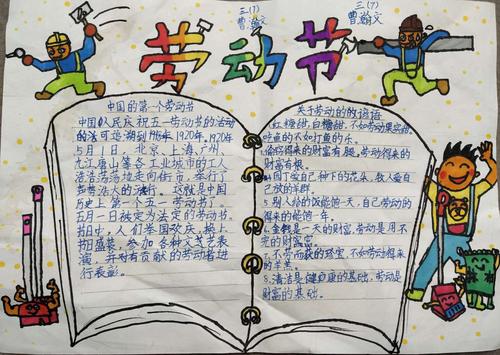 三(7)
曹瀚文
三(7)
曹瀚文
劳动节
中国的第一个劳动节
中国人民庆祝五一劳动节的活动
的法可追溯到1920年,1920年
5月1日,北京、上海、广州、
九江唐山等各工业城市的工人
浩浩荡荡地走向街市,举行了
声势浩大的游行。这就是中国
历史上第一个五一劳动节了。
五月一日被定为法定的劳动节。
节日中,人们举国欢庆,换上
节日盛装,参加各种文艺表
演,并对有贡献的劳动者进
行表彰。
关于劳动的的谚语
1.红糖甜,白糖甜,不如劳动果实甜
吃鱼的不如打鱼的乐。
偷窃得来的财富有腿,劳动得来的
财富有根。
园丁爱自己种下的花朵,牧人爱自
己放的羊群。
5.别人给的饭能饱一天,自己劳动的
得来的能饱一年。
6.金钱是一天的财富,劳动是用不
完的财富。
7.不劳而获的珍宝,不如劳动得来
的羊羔。
8.清洁是健康的基础,劳动是
财富的基础。